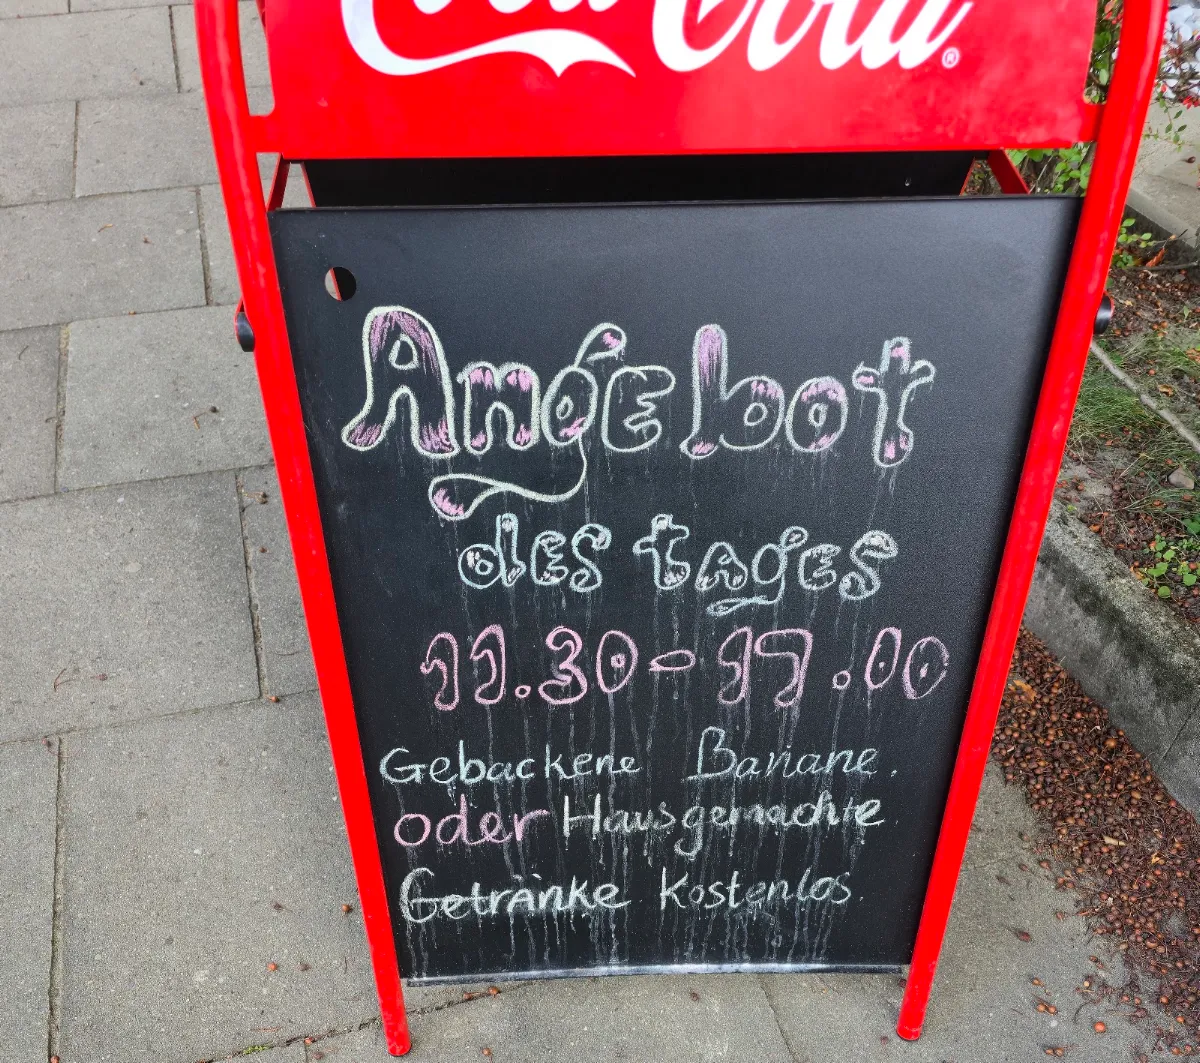 Coca-Cola®
Angebot
des tages
11.30-17.00
Gebackene Banane.
oder Hausgemachte
Getränke Kostenlos.